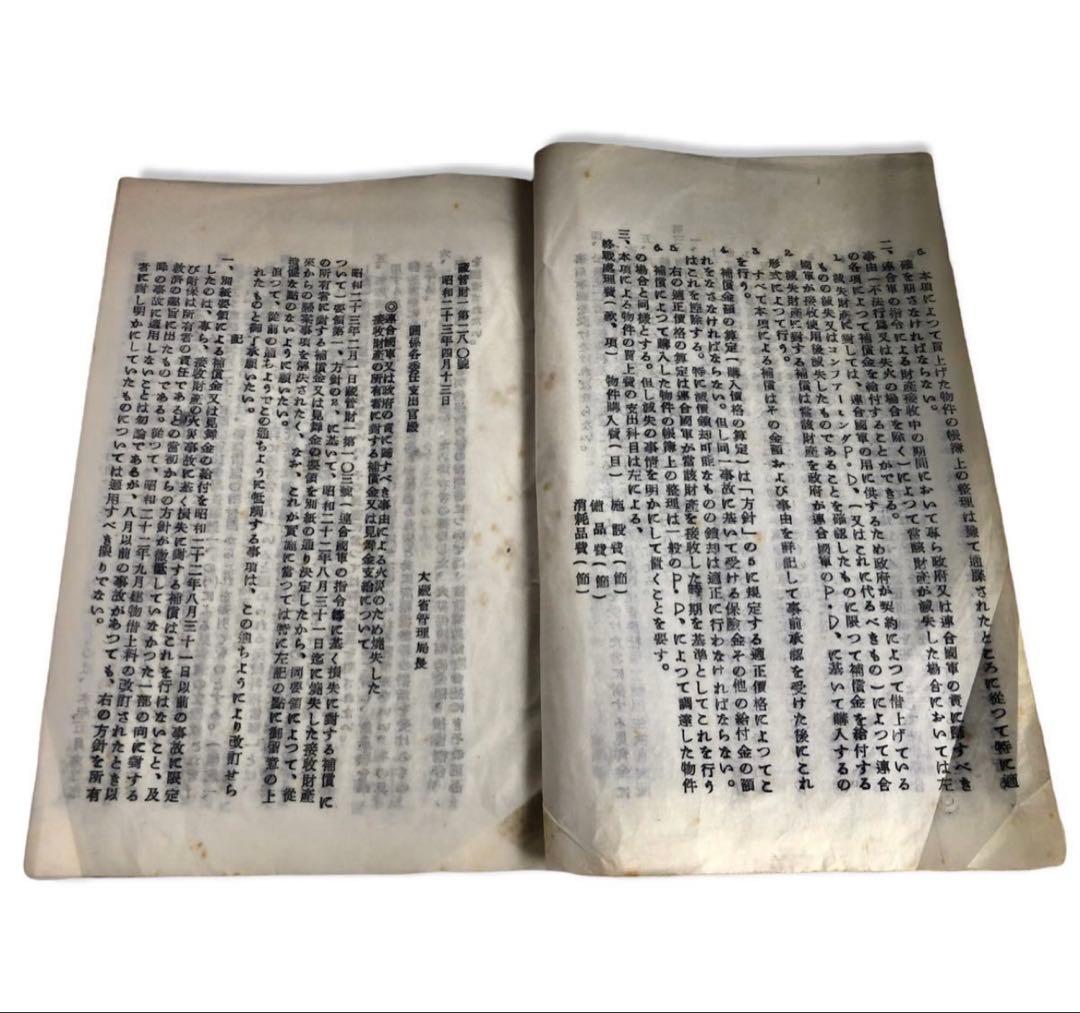 6 本項によつて買上げた物件の帳簿上の整理は豫て通牒されたところに從つて特に適
確を期さなければならない。
二、連合軍の指令による財産接收中の期間において專ら政府又は連合國軍の責に歸すべき
事由（不法行爲又は失火の場合を除く）によつて當該財産が滅失した場合においては左
の各項によつて補償金を給付することができる。
1 滅失財産に對しては、連合國軍の用に供するため政府が契約によつて借上げている
もの の滅失又はコンファーミングP・D、（又はこれに代るべきもの）によつて連合
國軍が接收使用後滅失したものであることを確認したものに限つて補償金を給付する
2 滅失財産に對する補償は當該財産を政府が連合國軍のP・D、に基いて購入するの
形式によつて行う。
3 すべて本項による補償はその金額および事由を詳記して事前承認を受けた後にこれ
を行う。
4 補償金額の算定（購入價格の算定）は「方針」の に規定する適正價格によつてこ
れをなさなければならない。但し同一事故に基いて受ける保險金その他の給付金の額
はこれを控除する。特に減價償却可能なものの償却は適正に行わなければならない。
5 右の適正價格の算定は連合國軍が當該財産を接收した時期を基準としてこれを行う
6 補償によつて購入した物件の帳簿上の整理は一般のP・D、によつて調達した物件
の場合と同樣とする。但し滅失の事情を明かにして置くことを要す。
三、本項による物件の買上費の支出科目は左による、
終戰處理費（款、項） 物件購入費（目） 施設費（節）
備品費（節）
消耗品費（節）
藏管財二第二八〇號
昭和二十三年四月十二日
大藏省管理局長
關係各委任支出官殿
◎連合國軍又は政府の責に歸すべき事由による火災のため燒失した
接收財産の所有者に對する補償金又は見舞金支給について
昭和二十三年二月一日藏管財二第一〇三號（連合國軍の指令等に基く損失に對する補償に
ついて）要領第一、方針の2、に基いて、昭和二十二年八月三十一日迄に燒失した接收財産
の所有者に對する補償金又は見舞金の要領を別紙の通り決定したから、同要領によつて、從
來からの懸案事項を解決されたく、なお、これが實施に當つては特に左記の點に御留意の上
遺憾な點のないように願いたい。
追つて、從前の通ちようでこの通ちように低觸する事項は、この通ちようにより改訂せら
れたものと御了承願いたい。
記
一、別紙要領による補償金又は見舞金の給付を昭和二十二年八月三十一日以前の事故に限定
したのは、專ら、接收財産の火災事故に基く損失に對する補償はこれを行はないこと、及
び擔保は所有者の責任であるとの當初からの方針が徹底していなかつた一部の向に對する
救濟の趣旨に出たものである。從つて、昭和二十二年九月建物借上料の改訂されたとき以
降の事故に適用しないことは勿論であるが、八月以前の事故があつても、右の方針を所有
者に對し明かにしていたものについては適用すべき限りでない。